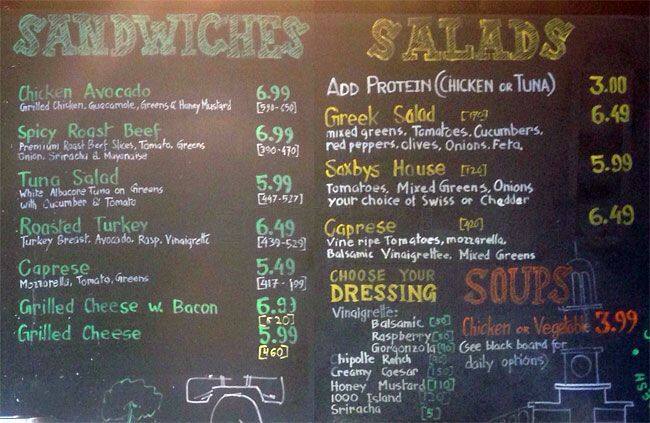 SANDWICHES
Chicken Avocado 6.99
Grilled Chicken, Guacamole, Greens & Honey Mustard [590-650]
Spicy Roast Beef 6.99
Premium Roast Beef Slices, Tomato, Greens [390-470]
Onion, Sriracha & Mayonaise
Tuna Salad 5.99
White Albacore Tuna on Greens [447-527]
with Cucumber & Tomato
Roasted Turkey 6.49
Turkey Breast, Avocado, Rasp. Vinaigrette [439-529]
Caprese 5.49
Mozzarella, Tomato, Greens [417-]
Grilled Cheese w. Bacon 6.99
[520]
Grilled Cheese 5.99
[460]
SALADS
ADD PROTEIN (CHICKEN OR TUNA) 3.00
Greek Salad 6.49
mixed greens, Tomatoes, Cucumbers,
red peppers, olives, Onions, Feta,
Saxbys House [120] 5.99
Tomatoes, Mixed Greens, Onions
your choice of Swiss or Cheddar
Caprese [420] 6.49
Vine ripe Tomatoes, mozzarella,
Balsamic Vinaigrettee, Mixed Greens
CHOOSE YOUR
DRESSING
Vinaigrette:
Balsamic
Raspberry
Gorgonzola
Chipotle Ranch
Creamy Caesar [150]
Honey Mustard [110]
1000 Island [120]
Sriracha [5]
SOUPS
Chicken or Vegetable 3.99
(see black board for
daily options)